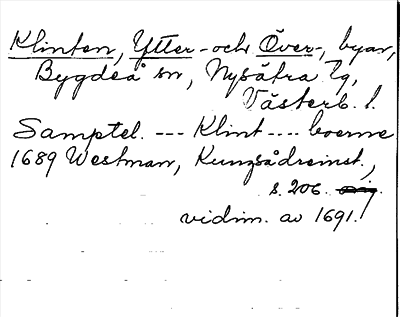 Klinten, Ytter- och Över-, byar,
Bygdeå sn, Nysätra tg,
Västerb. l.
Samptel. --- Klint---- boerne
1689 Westman, Kungsådreinst.,
s. 206.
vidim. av 1691.